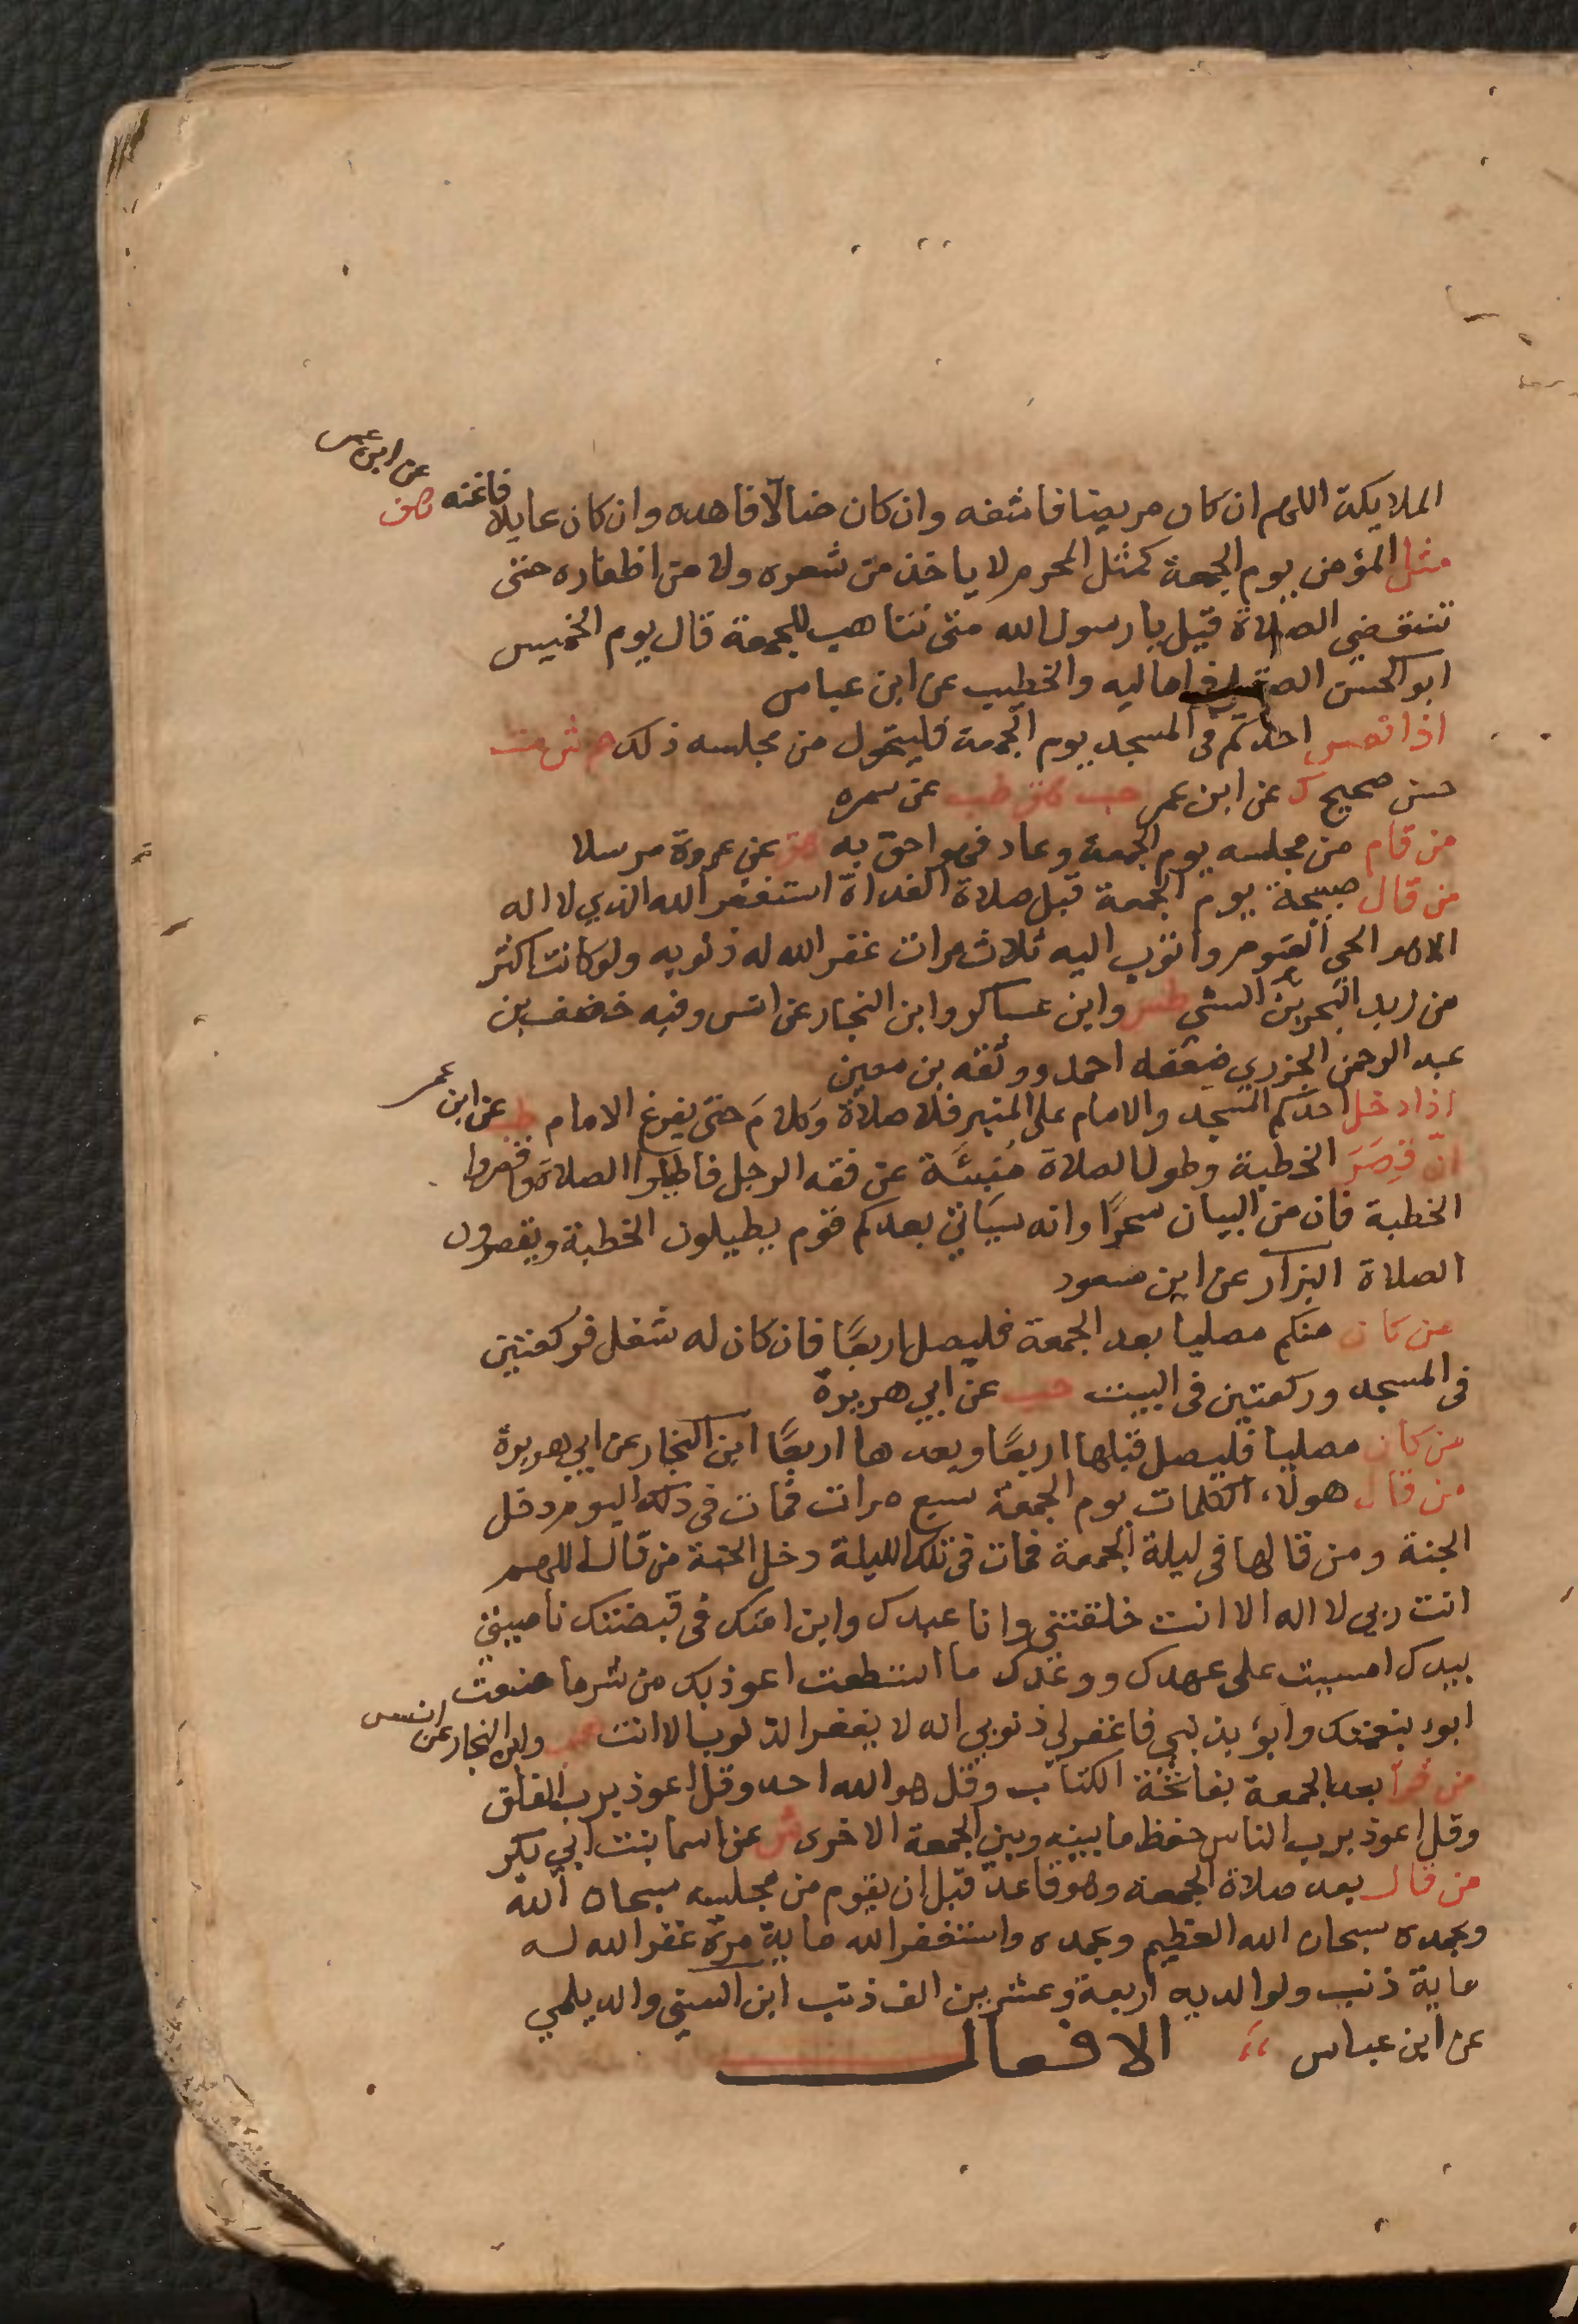 الملايكة اللهم ان كان مريضا فاشفه وان كان ضالّا فاهده وان كان عايلا فاغنه هق عن ابن عمر
مثل المؤمن يوم الجمعة كمثل المحرم لا ياخذ من شعره ولا من اظفاره حتى
تنقضي الصلاة قيل يا رسول الله متى نتاهب للجمعة قال يوم الخميس
ابو الحسن في اماليه والخطيب عن ابن عباس
اذا نعس احدكم فى المسجد يوم الجمعة فليتحول من مجلسه ذلك
حسن صحيح ك عن ابن عمر حب طب عن سمره
من قام من مجلسه يوم الجمعة وعاد فهو احق به عن عروة مرسلا
من قال صبيحة يوم الجمعة قبل صلاة الغداة استغفر الله الذي لا اله
الا هو الحى القيوم واتوب اليه ثلاث مرات غفر الله له ذنوبه ولو كانت اكثر
من زبد البحر ابن السني طس وابن عساكر وابن النجار عن انس وفيه خصيف بن
عبد الرحمن الجزري ضعفه احمد ووثقه بن معين
اذا دخل احدكم المسجد والامام على المنبر فلا صلاة وكلامَ حتى يفرغ الامام طب عن ابن عمر
انّ قِصَرَ الخطبة وطول الصلاة مُنبئَة عن فقه الرجل فاطيلوا الصلاة واقصروا
الخطبة فان من البيان سحرًا وانه سياتي بعدكم قوم يطيلون الخطبة ويقصرون
الصلاة البزار عن ابن مسعود
من كان منكم مصليا بعد الجمعة فليصل اربعًا فان كان له شغل فركعتين
فى المسجد وركعتين فى البيت حب عن ابي هريرة
من كان مصليا فليصل قبلها اربعًا وبعدها اربعًا ابن النجار عن ابي هريرة
من قال هولاء الكلمات يوم الجمعة سبع مرات فمات فى ذلك اليوم دخل
الجنة ومن قالها فى ليلة الجمعة فمات فى تلك الليلة دخل الجنة من قال اللهم
انت ربى لا اله الا انت خلقتنى وانا عبدك وابن امتك فى قبضتك ناصيتي
بيدك امسيت على عهدك ووعدك ما استطعت اعوذ بك من شر ما صنعت
ابوء بنعمتك وابوء بذنبي فاغفر لي ذنوبي انه لا يغفر الذنوب الا انت هب وابن النجار عن انس
من قرا بعد الجمعة بفاتحة الكتاب وقل هو الله احد وقل اعوذ برب الفلق
وقل اعوذ برب الناس حفظ ما بينه وبين الجمعة الاخرى ش عن اسما بنت ابي بكر
من قال بعد صلاة الجمعة وهو قاعد قبل ان يقوم من مجلسه سبحان الله
وبحمده سبحان الله العظيم وبحمده واستغفر الله ماية مرة غفر الله له
ماية ذنب ولوالديه اربعة وعشرين الف ذنب ابن السني والديلمي
عن ابن عباس الافعال